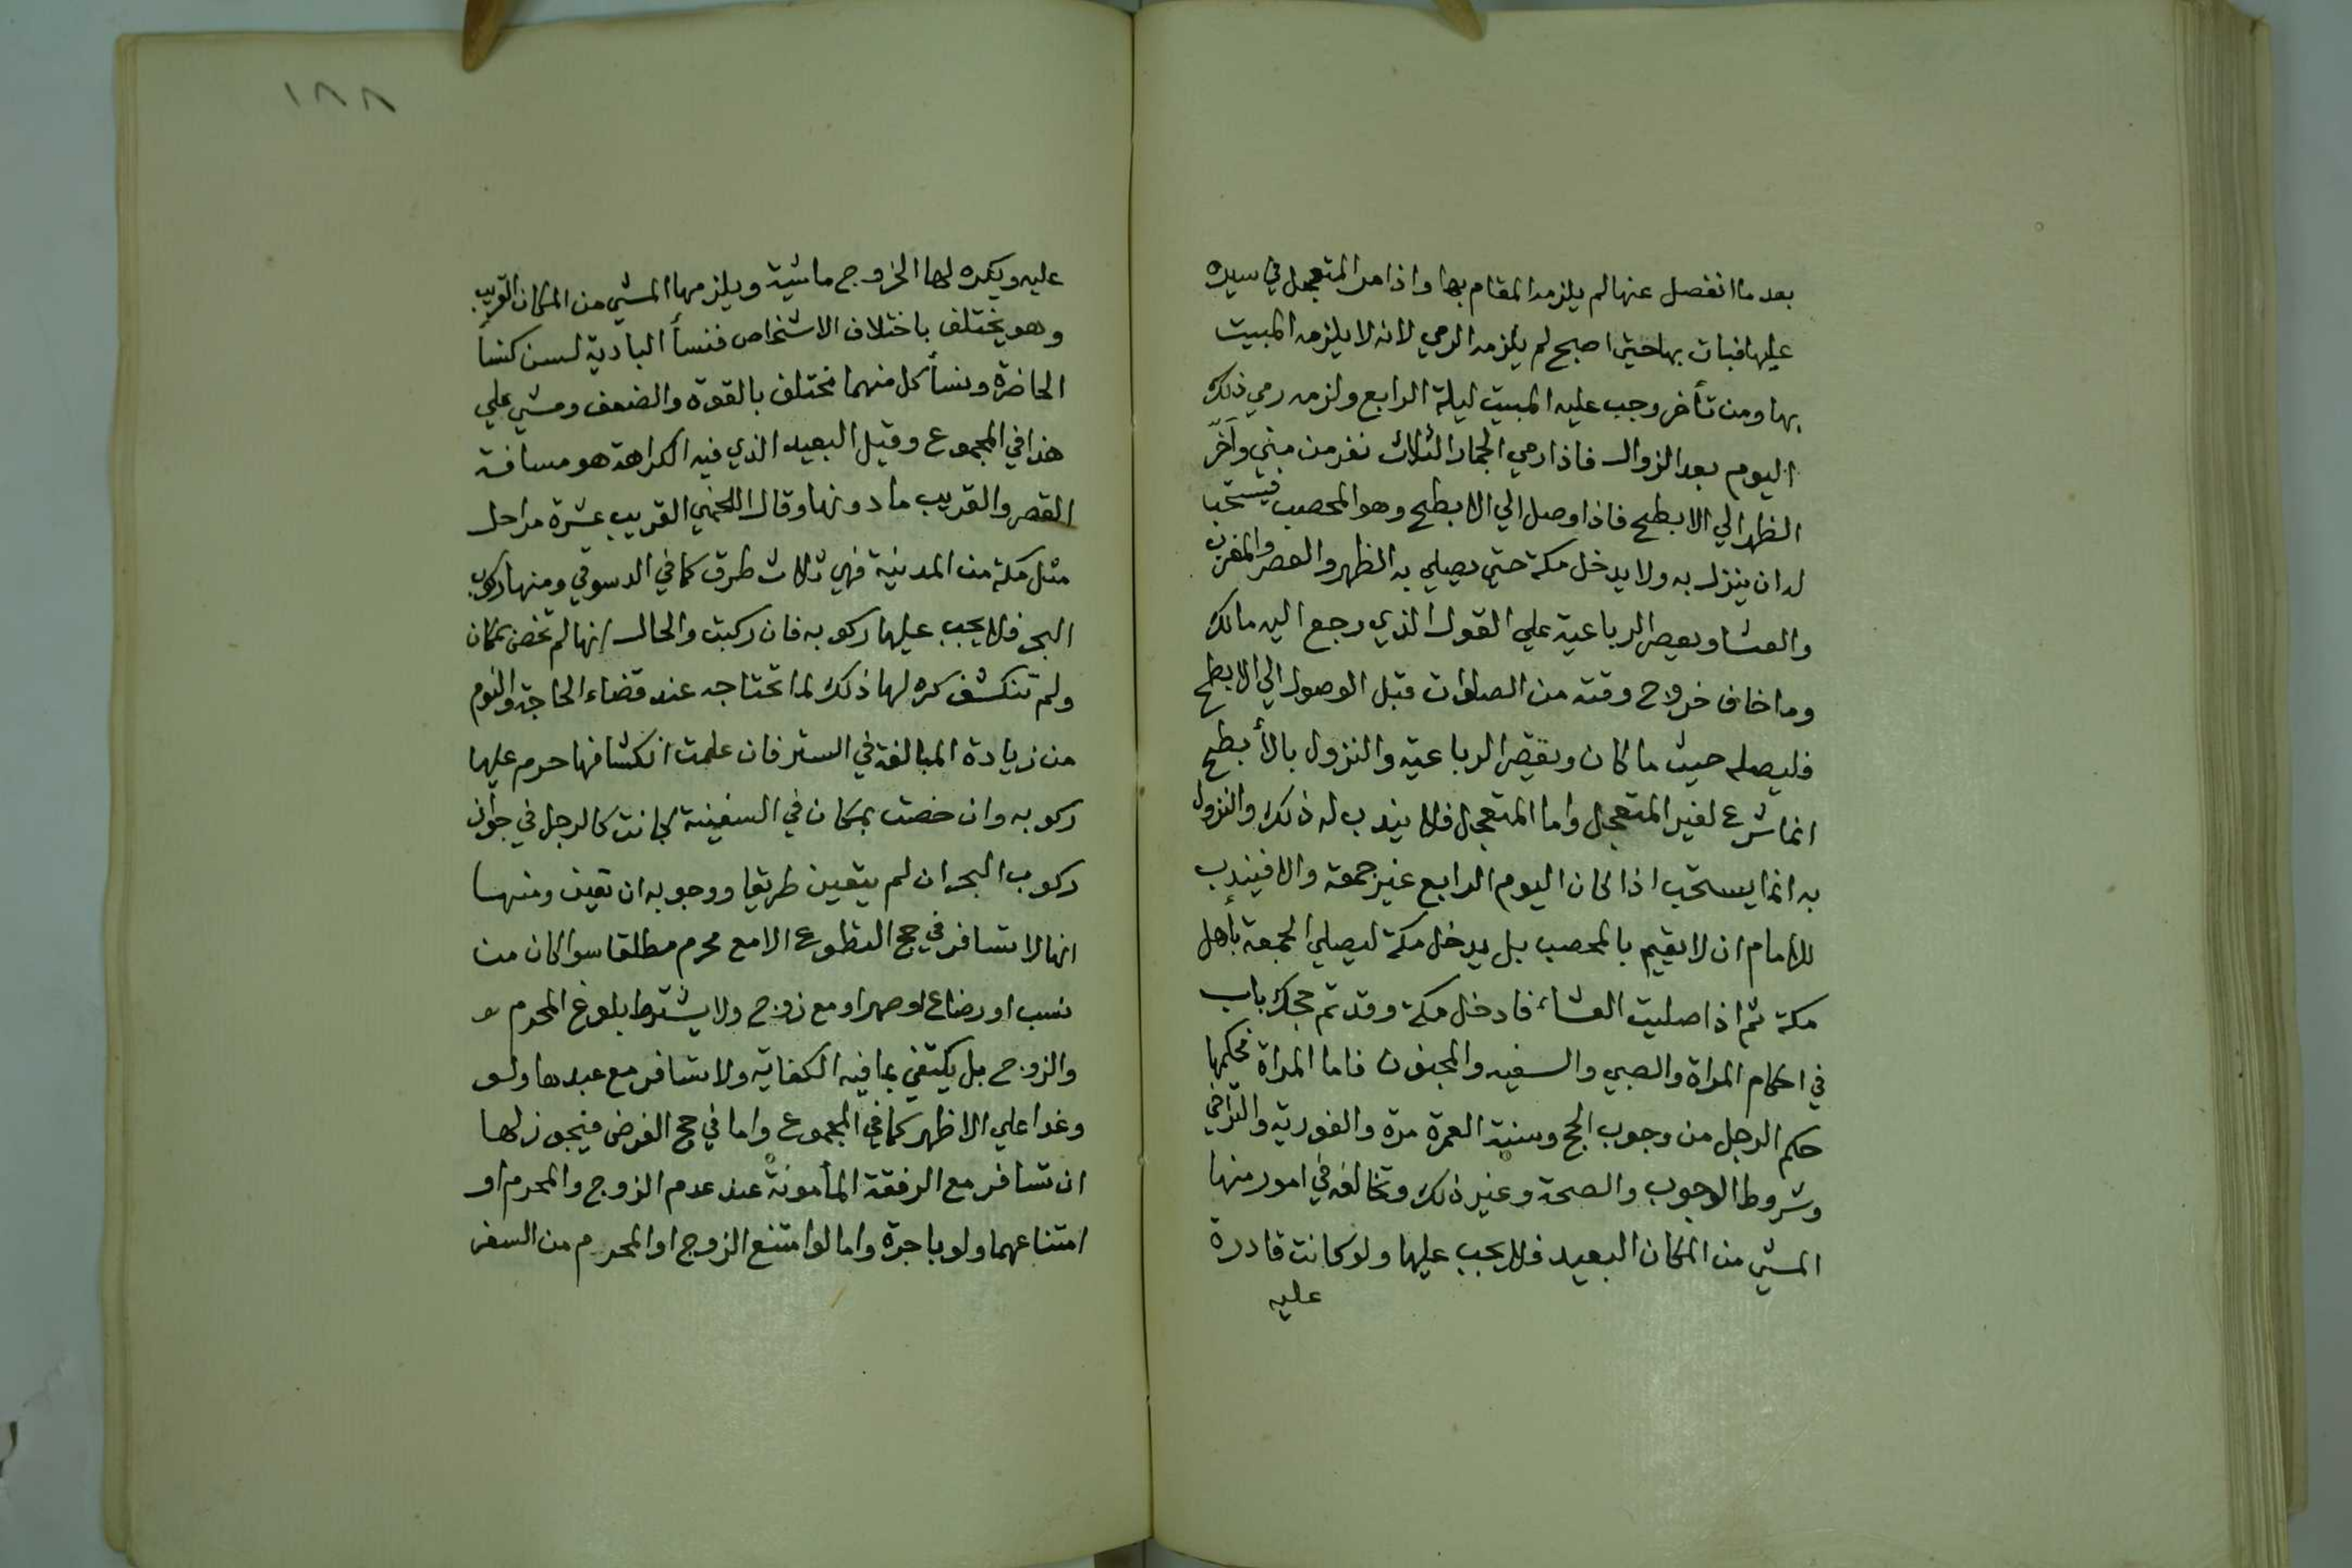 بعد ما انفصل عنها لم يلزمه المقام بها واذا مر المتعجل في سيره
عليها فبات بها حتي اصبح لم يلزمه الرمي لانه لا يلزمه المبيت
بها ومن تأخر وجب عليه المبيت ليلة الرابع ولزمه رمي ذلك
اليوم بعد الزوال فاذا رمي الجمار الثلاث نفر من مني وآخر
الظهر الي الابطح فاذا وصل الي الابطح وهو المحصب فيستحبا
له ان ينزل به ولا يدخل مكة حتي يصلي به الظهر والعصر والمغرب
والعشا ويقصر الرباعية علي القول الذي رجع اليه مالك
وما خاف خروج وقته من الصلوات قبل الوصول الي الابطح
فليصله حيث ما كان ويقصر الرباعية والنزول بالأبطح
انما شرع لغير المتعجل واما المتعجل فلا يندب له ذلك والنزول
به انما يستحب اذا كان اليوم الرابع غير جمعة والا فيندب
للامام ان لا يقيم بالمحصب بل يدخل مكة ليصلي الجمعة بأهل
مكة ثم اذا صليت العشاء فادخل مكة وقد تم حجك باب
في احكام المراة والصبي والسفيه والمجنون فاما المراة فحكمها
حكم الرجل من وجوب الحج وسنية العمرة مرة والفورية والتراخي
وشروط الوجوب والصحة وغير ذلك وتخالفه في امور منها
المشي من المكان البعيد فلا يجب عليها ولو كانت قادرة
عليه
١٨٨
عليه ويكره لها الخروج ماشية ويلزمها المشي من المكان القريب
وهو يختلف باختلاف الاشخاص فنسأ البادية لسن كنسأ
الحاضرة ونسأ كل منهما مختلف بالقوة والضعف ومشي علي
هذا في المجموع وقيل البعيد الذي فيه الكراهة هو مسافة
القصر والقريب ما دونها وقال اللخمي القريب عشرة مراحل
مثل مكة من المدينة فهي ثلاث طرق كما في الدسوقي ومنها ركوب
البحر فلا يجب عليها ركوبه فان ركبت والحال انها لم تخص بمكان
ولم تنكشف كره لها ذلك لما تحتاجه عند قضاء الحاجة والنوم
من زيادة المبالغة في الستر فان علمت انكشافها حرم عليها
ركوبه وان خصت بمكان في السفينة كانت كالرجل في جواز
ركوب البحر ان لم يتعين طريقا ووجوبه ان تعين ومنها
انها لا تسافر في حج التطوع الا مع محرم مطلقا سوا كان من
نسب او رضاع او صهر او مع زوج ولا يشترط بلوغ المحرم
والزوج بل يكتفي بما فيه الكفاية ولا تسافر مع عبدها ولو
وغدا علي الاظهر كما في المجموع واما في حج الفرض فيجوز لها
ان تسافر مع الرفقة المأمونة عند عدم الزوج والمحرم او
امتناعهما ولو باجرة واما لو امتنع الزوج او المحرم من السفر